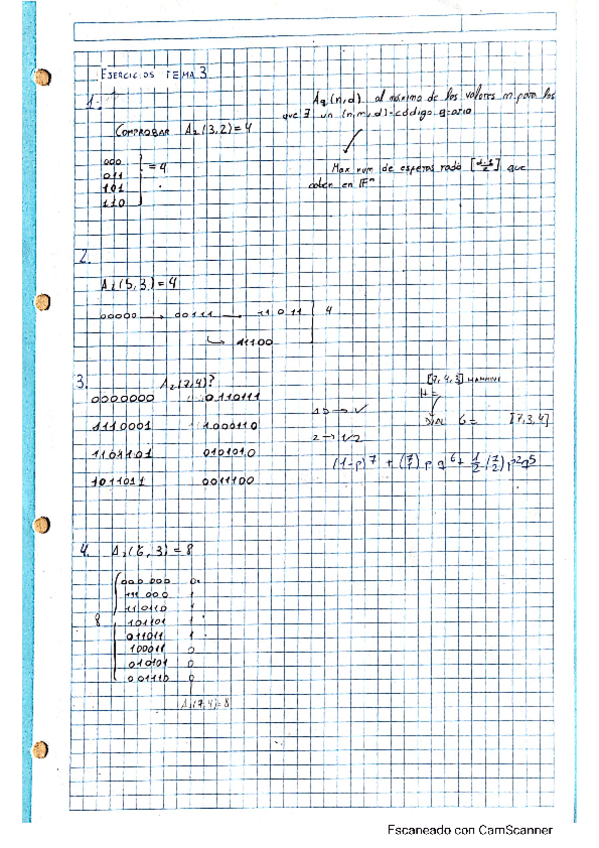 EJERCICIOS TEMA 3
1.
Aq(n,d) al máximo de los valores m para los
que ∃ un (n,m,d)-código q-ario
COMPROBAR A₂(3,2)=4
000
011 = 4
101
110
Max num de esferas radio [d-1/2] que
caben en Fⁿ
2.
A₂(5,3)=4
00000 → 00111 → 11011 4
↳ 11100
3. A₂(7,4)?
0000000 0110111
1110001 1000110
1101101 0101010
1011011 0011100
[7,4,3] HAMMING
H=
DUAL G= [7,3,4]
2 → 1/2
(1-p)⁷ + (7 1) p q⁶ + 1/2 (7 2) p² q⁵
4. A₂(6,3) = 8
000 000 0
111 000 1
110110 1
8 101101 1
011011 1
100011 0
010101 0
001110 0
A₂(7,4)=8
Escaneado con CamScanner